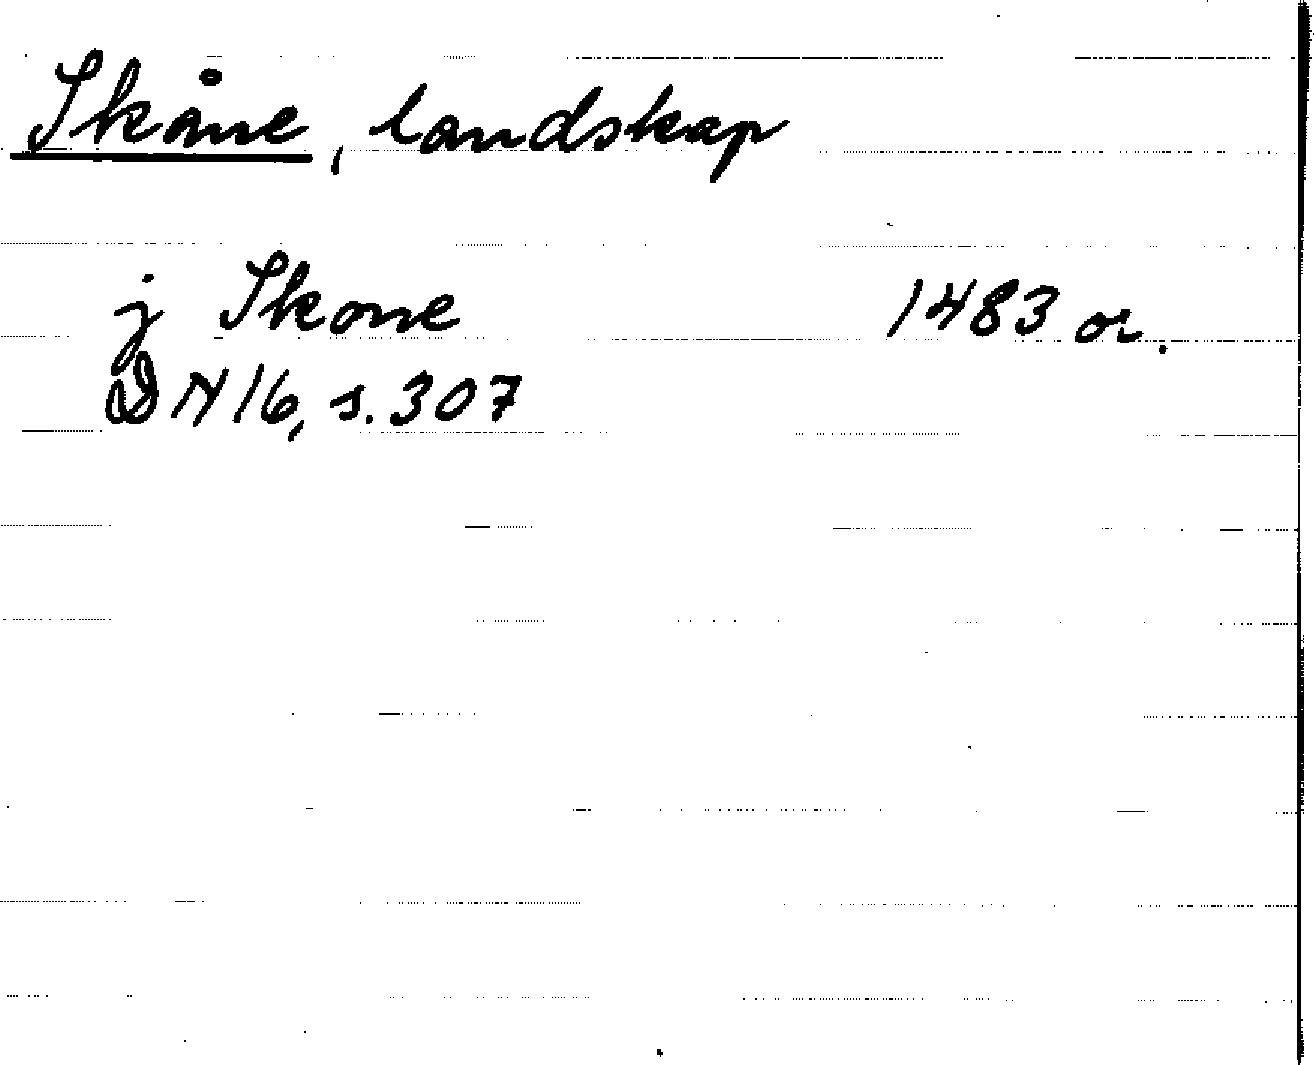 Skåne, landskap
j Skone 1483 or.
DN 16, s. 307